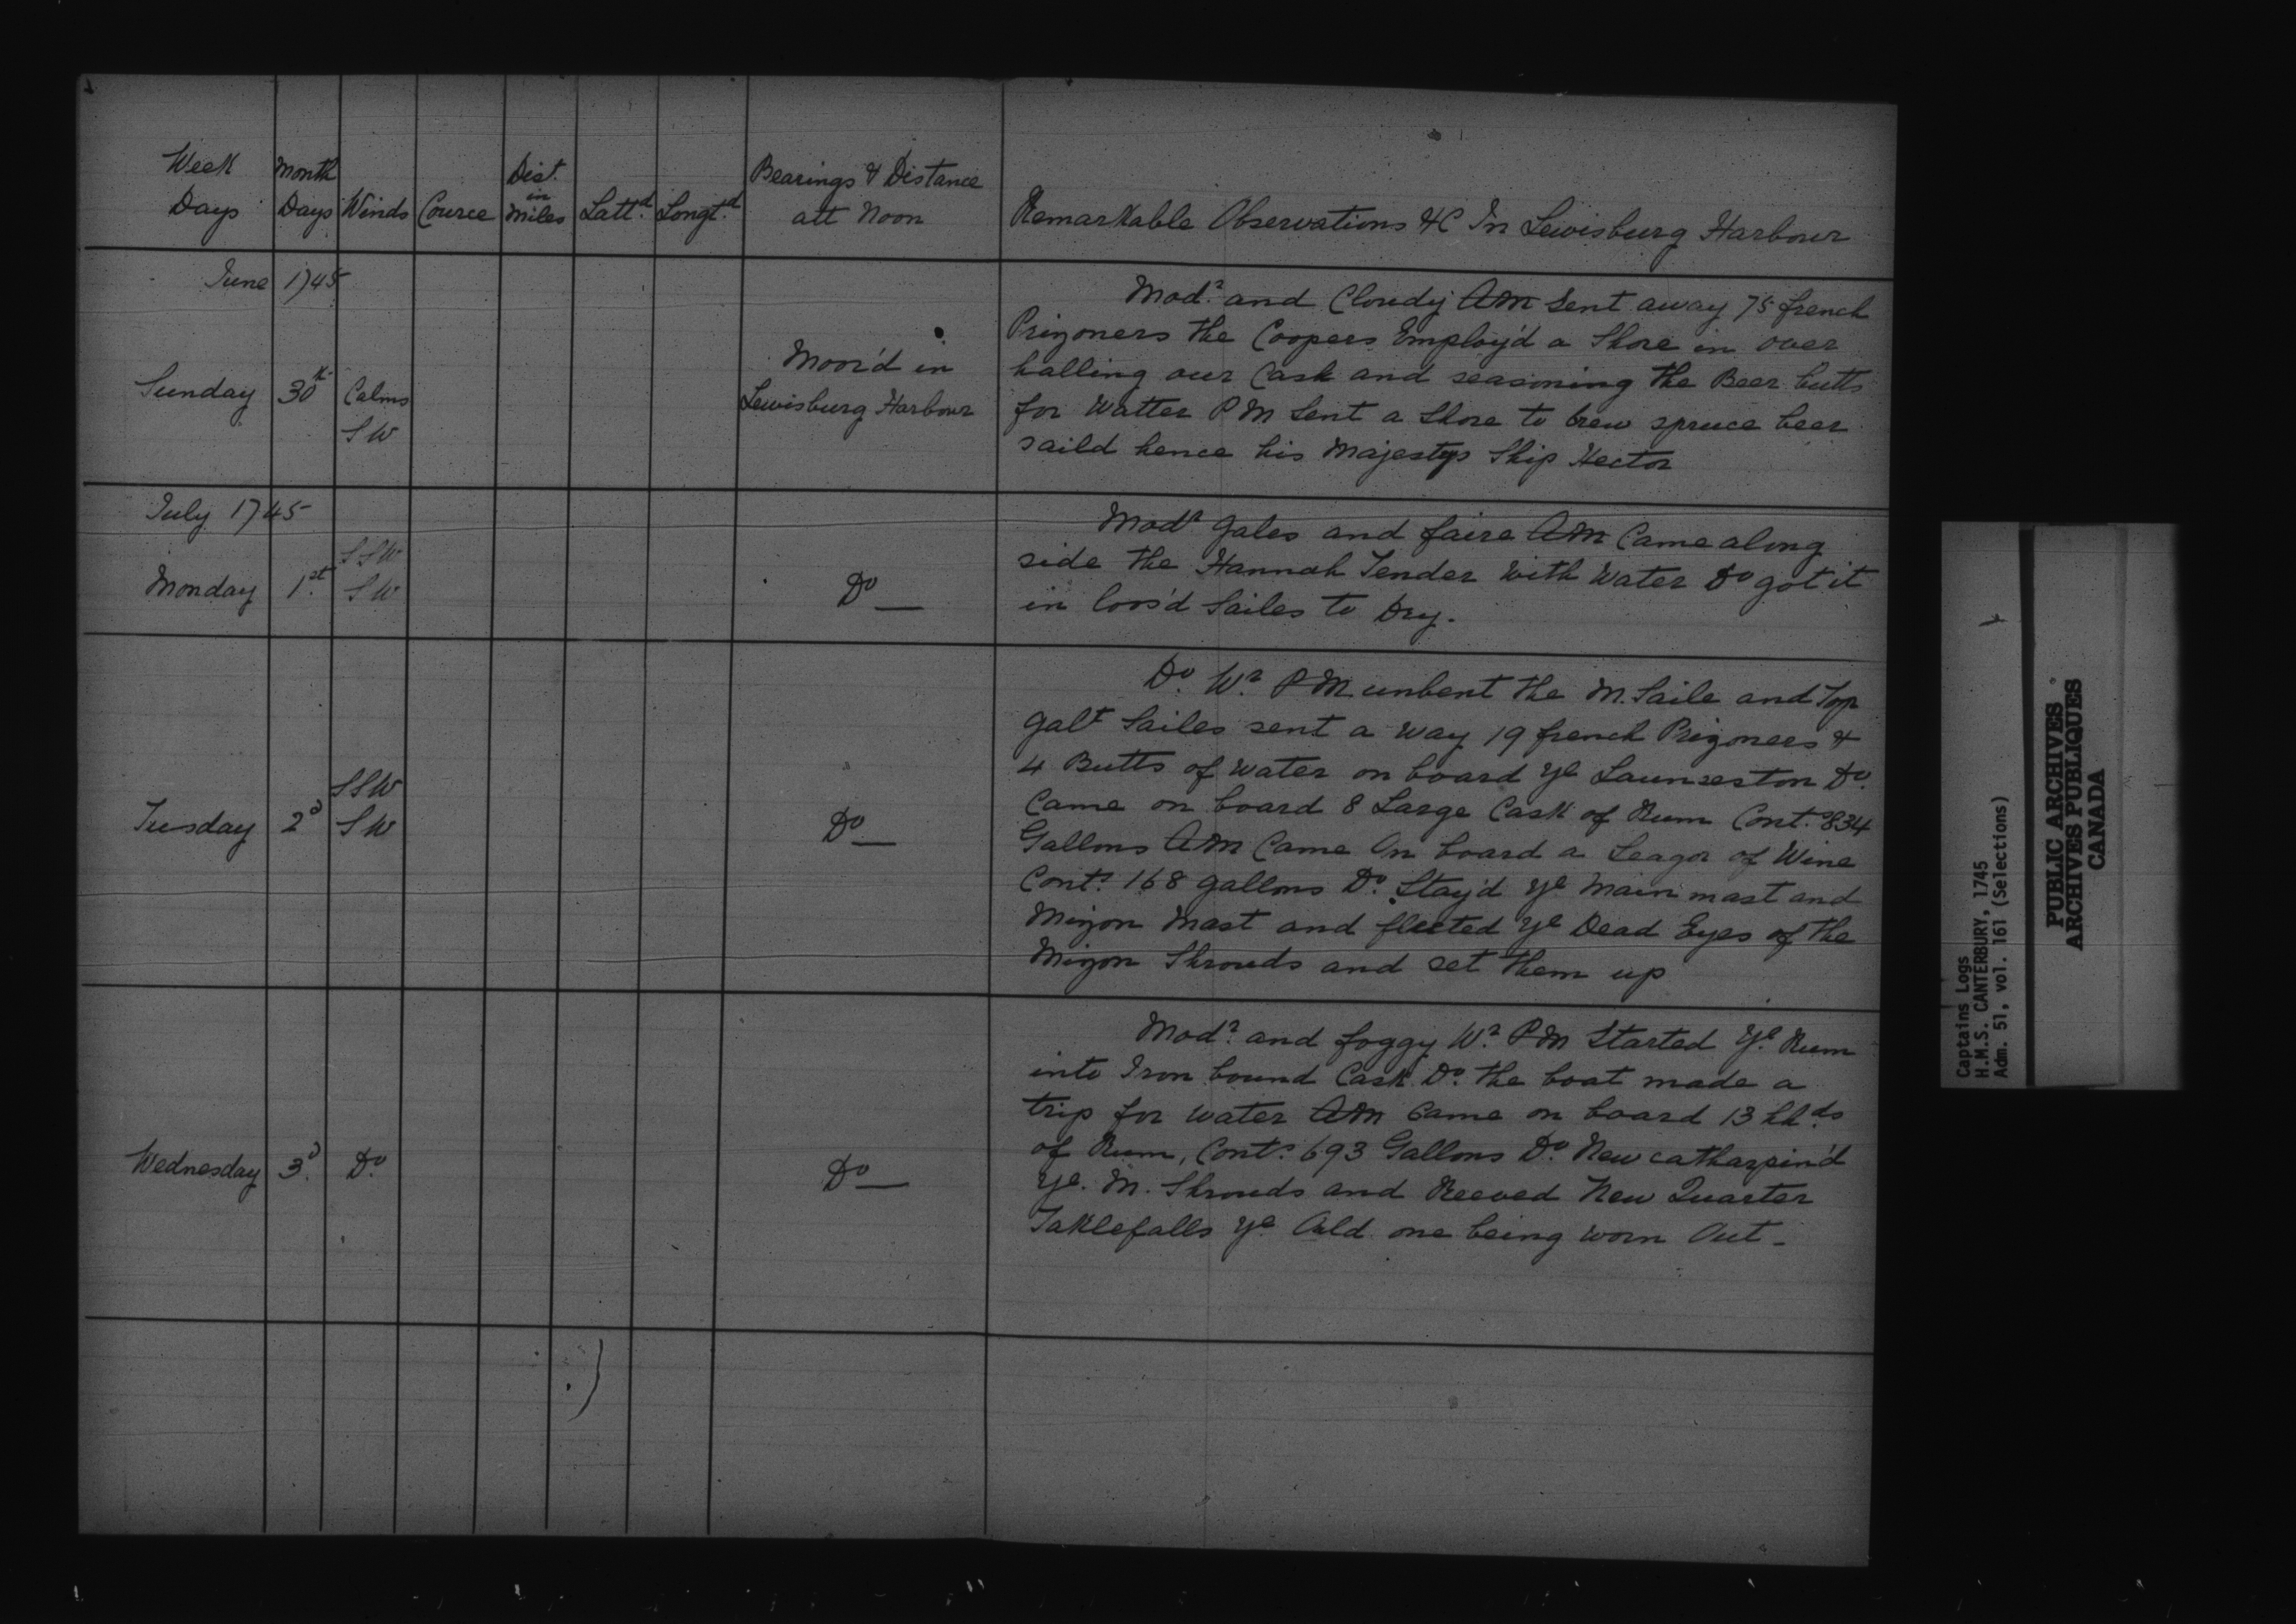 Week Days
Month Days
Winds
Cource
Dist. in Miles
Lattd.
Longtd.
Bearings & Distance
att Noon
Remarkable Observations &C In Lewisburg Harbour
June 1745
Sunday 30th Calms
SW
Moor'd in
Lewisburg Harbour
Modr. and Cloudy AM Sent away 75 french
Prizoners the Coopers Employ'd a Shore in over
halling our Cask and seasoning the Beer butts
for Watter PM Sent a Shore to brew spruce beer
saild hence his Majestys Ship Hector
July 1745
Monday 1st. SSW
SW
Do —
Modr Gales and faire AM Came along
side the Hannah Tender with Water Do got it
in loos'd Sailes to Dry.
Tusday 2d SSW
SW
Do —
Do. Wr. PM unbent the M. Saile and Top
Galt Sailes sent a way 19 french Prizoners &
4 Butts of Water on board ye Launseston Do.
Came on board 8 Large Cask of Rum Cont. 834
Gallons AM Came On board a Leagor of Wine
Cont. 168 gallons Do. Stay'd ye Main mast and
Mizon Mast and fleeted ye Dead Eyes of the
Mizon Shrouds and set them up
Wednesday 3d. Do.
Do —
Modr. and foggy Wr. PM Started ye. Rum
into Iron bound Cask Do. the boat made a
trip for Water AM Came on board 13 hhds
of Rum, Cont. 693 Gallons Do. New catharpin'd
ye. M. Shrouds and Reeved New Quarter
Taklefalls ye Old one being worn Out -
Captains Logs
H.M.S. CANTERBURY, 1745
Adm. 51, vol. 161 (Selections)
PUBLIC ARCHIVES
ARCHIVES PUBLIQUES
CANADA